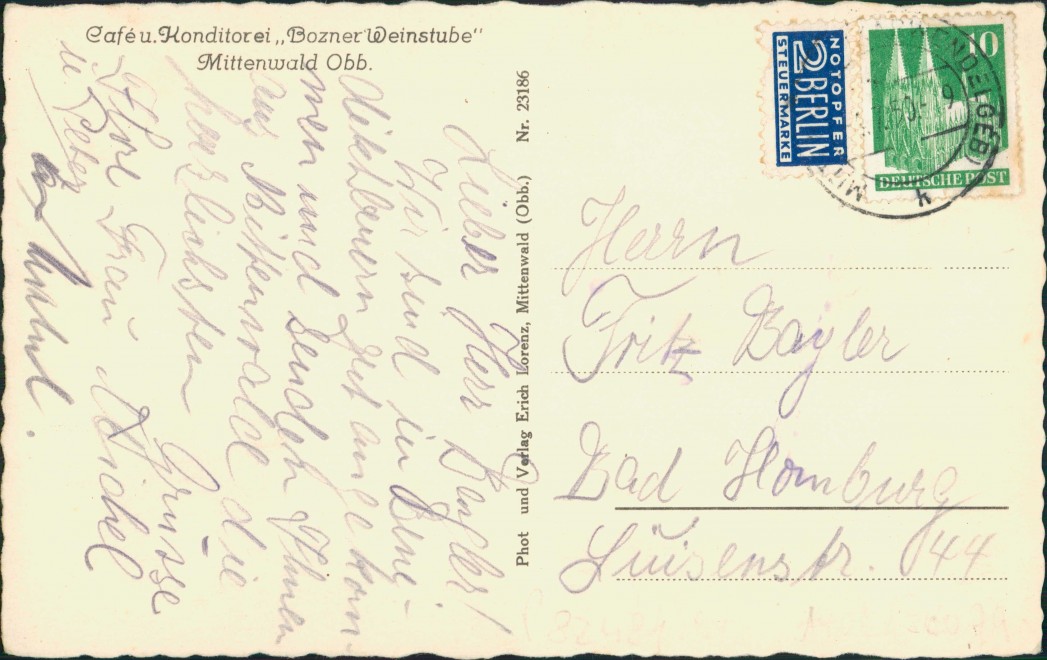 Café u. Konditorei „Bozner Weinstube"
Mittenwald Obb.
Lieber Herr Bayler!
Wir sind in Bene-
diktbeuern gut angekom-
men und senden Ihnen
aus Mittenwald die
herzlichsten Grüsse
Ihre Frau
u. Peter
Phot und Verlag Erich Lorenz, Mittenwald (Obb.) Nr. 23186
NOTOPFER
2 BERLIN
STEUERMARKE
10
DEUTSCHE POST
Herrn
Fritz Bayler
Bad Homburg
Luisenstr. 44